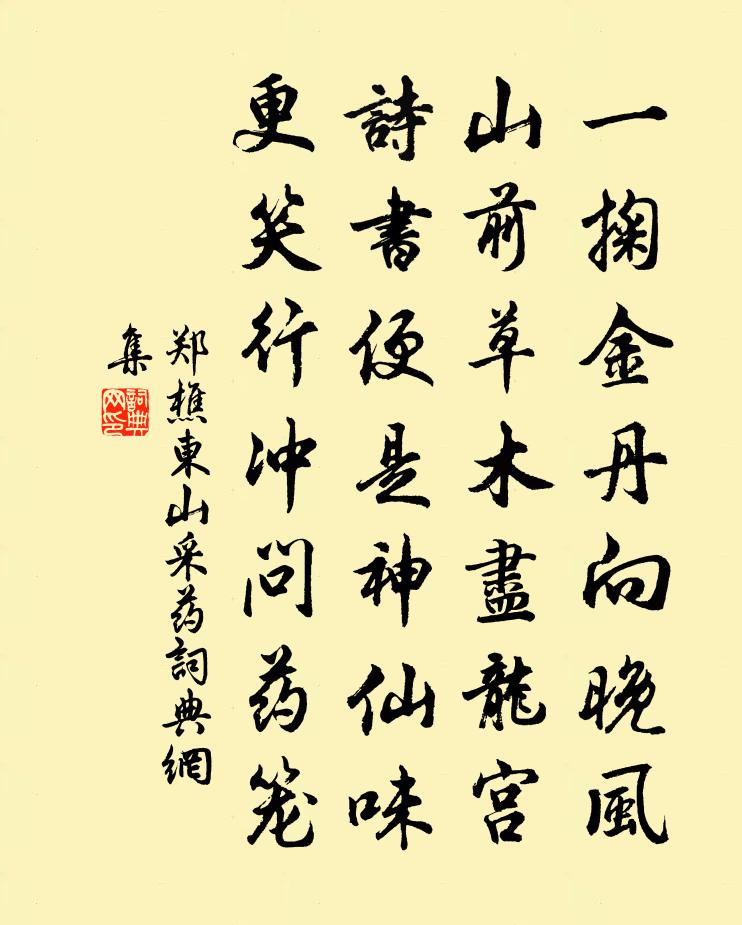 一掬金丹向晚風
山前草木盡龍宮
詩書便是神仙味
更笑行冲問药笼
郑樵東山采药詞典網
集
詞典
网印